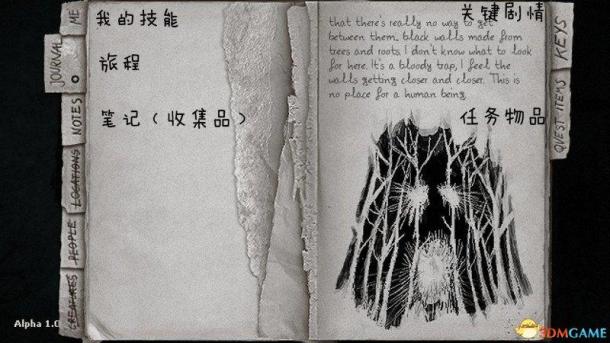 ME
JOURNAL
NOTES
LOCATIONS
PEOPLE
CREATURES
我的技能
旅程
笔记（收集品）
关键剧情
that there's really no way to get
between them. black walls made from
trees and roots. I don't know what to look
for here. It's a bloody trap, I feel the
walls getting closer and closer. This is
no place for a human being.
任务物品
KEYS
QUEST ITEMS
Alpha 1.0
3DMGAME